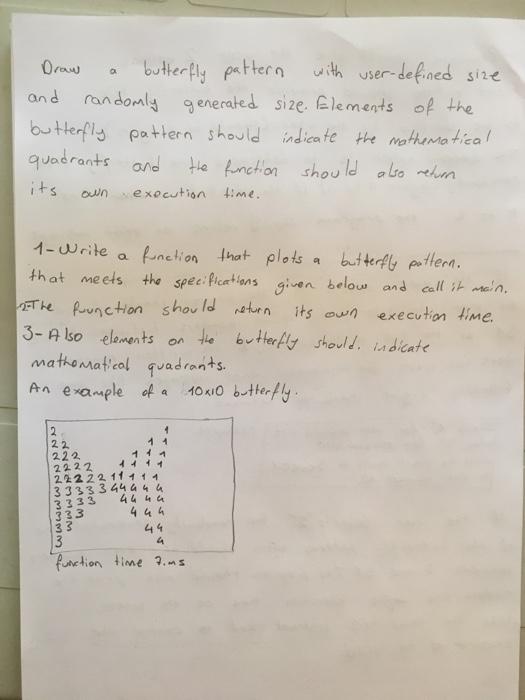 Draw a butterfly pattern with user-defined size
and randomly generated size. Elements of the
butterfly pattern should indicate the mathematical
quadrants and the function should also return
its own execution time.
1-Write a function that plots a butterfly pattern.
that meets the specifications given below and call it main.
2-The function should return its own execution time.
3-Also elements on the butterfly should. indicate
mathematical quadrants.
An example of a 10x10 butterfly.
2 1
22 11
222 111
2222 1111
2222211111
3333344444
3333 4444
333 444
33 44
3 4
function time 7.ms